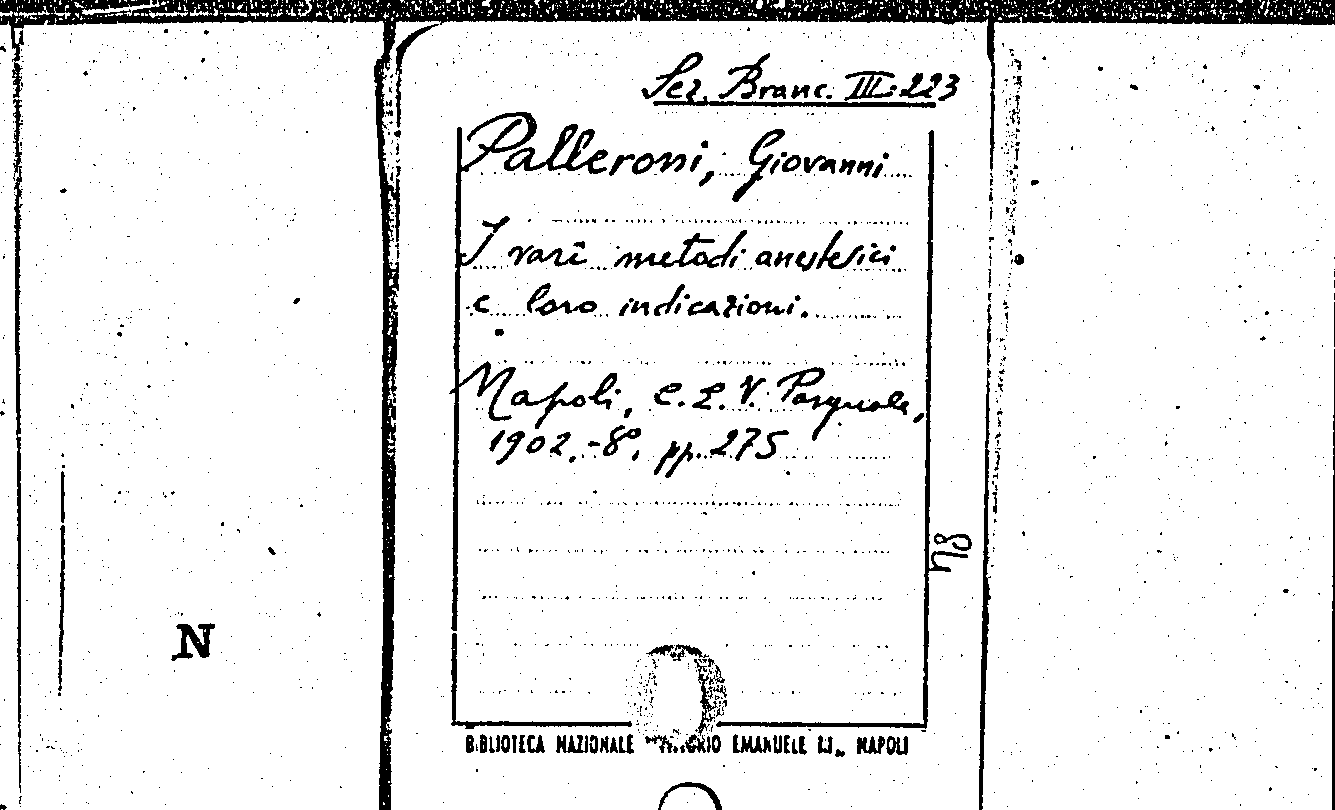 Sez. Branc. III. 223
Palleroni, Giovanni
I varî metodi anestesici
e loro indicazioni.
Napoli, E. L. V. Pasquale,
1902.-8°. pp. 275
N
BIBLIOTECA NAZIONALE EMANUELE MAPOLI